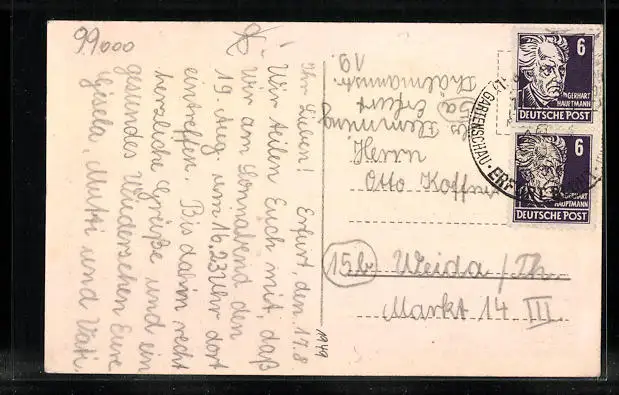 99000
Ihr Lieben! Erfurt, den 17.8
Wir teilen Euch mit, daß
wir am Sonnabend den
19. Aug. um 16.23 Uhr dort
eintreffen. Bis dahin recht
herzliche Grüße und ein
gesundes Wiedersehen Eure
Gisela, Mutti und Vati.
1949
Flemming
Erfurt
Thälmannstr.
19.
Herrn
Otto Koffner
15b Weida / Th.
Markt 14 III
6
GERHART
HAUPTMANN
DEUTSCHE POST
6
GERHART
HAUPTMANN
DEUTSCHE POST
GARTENSCHAU · ERFURT